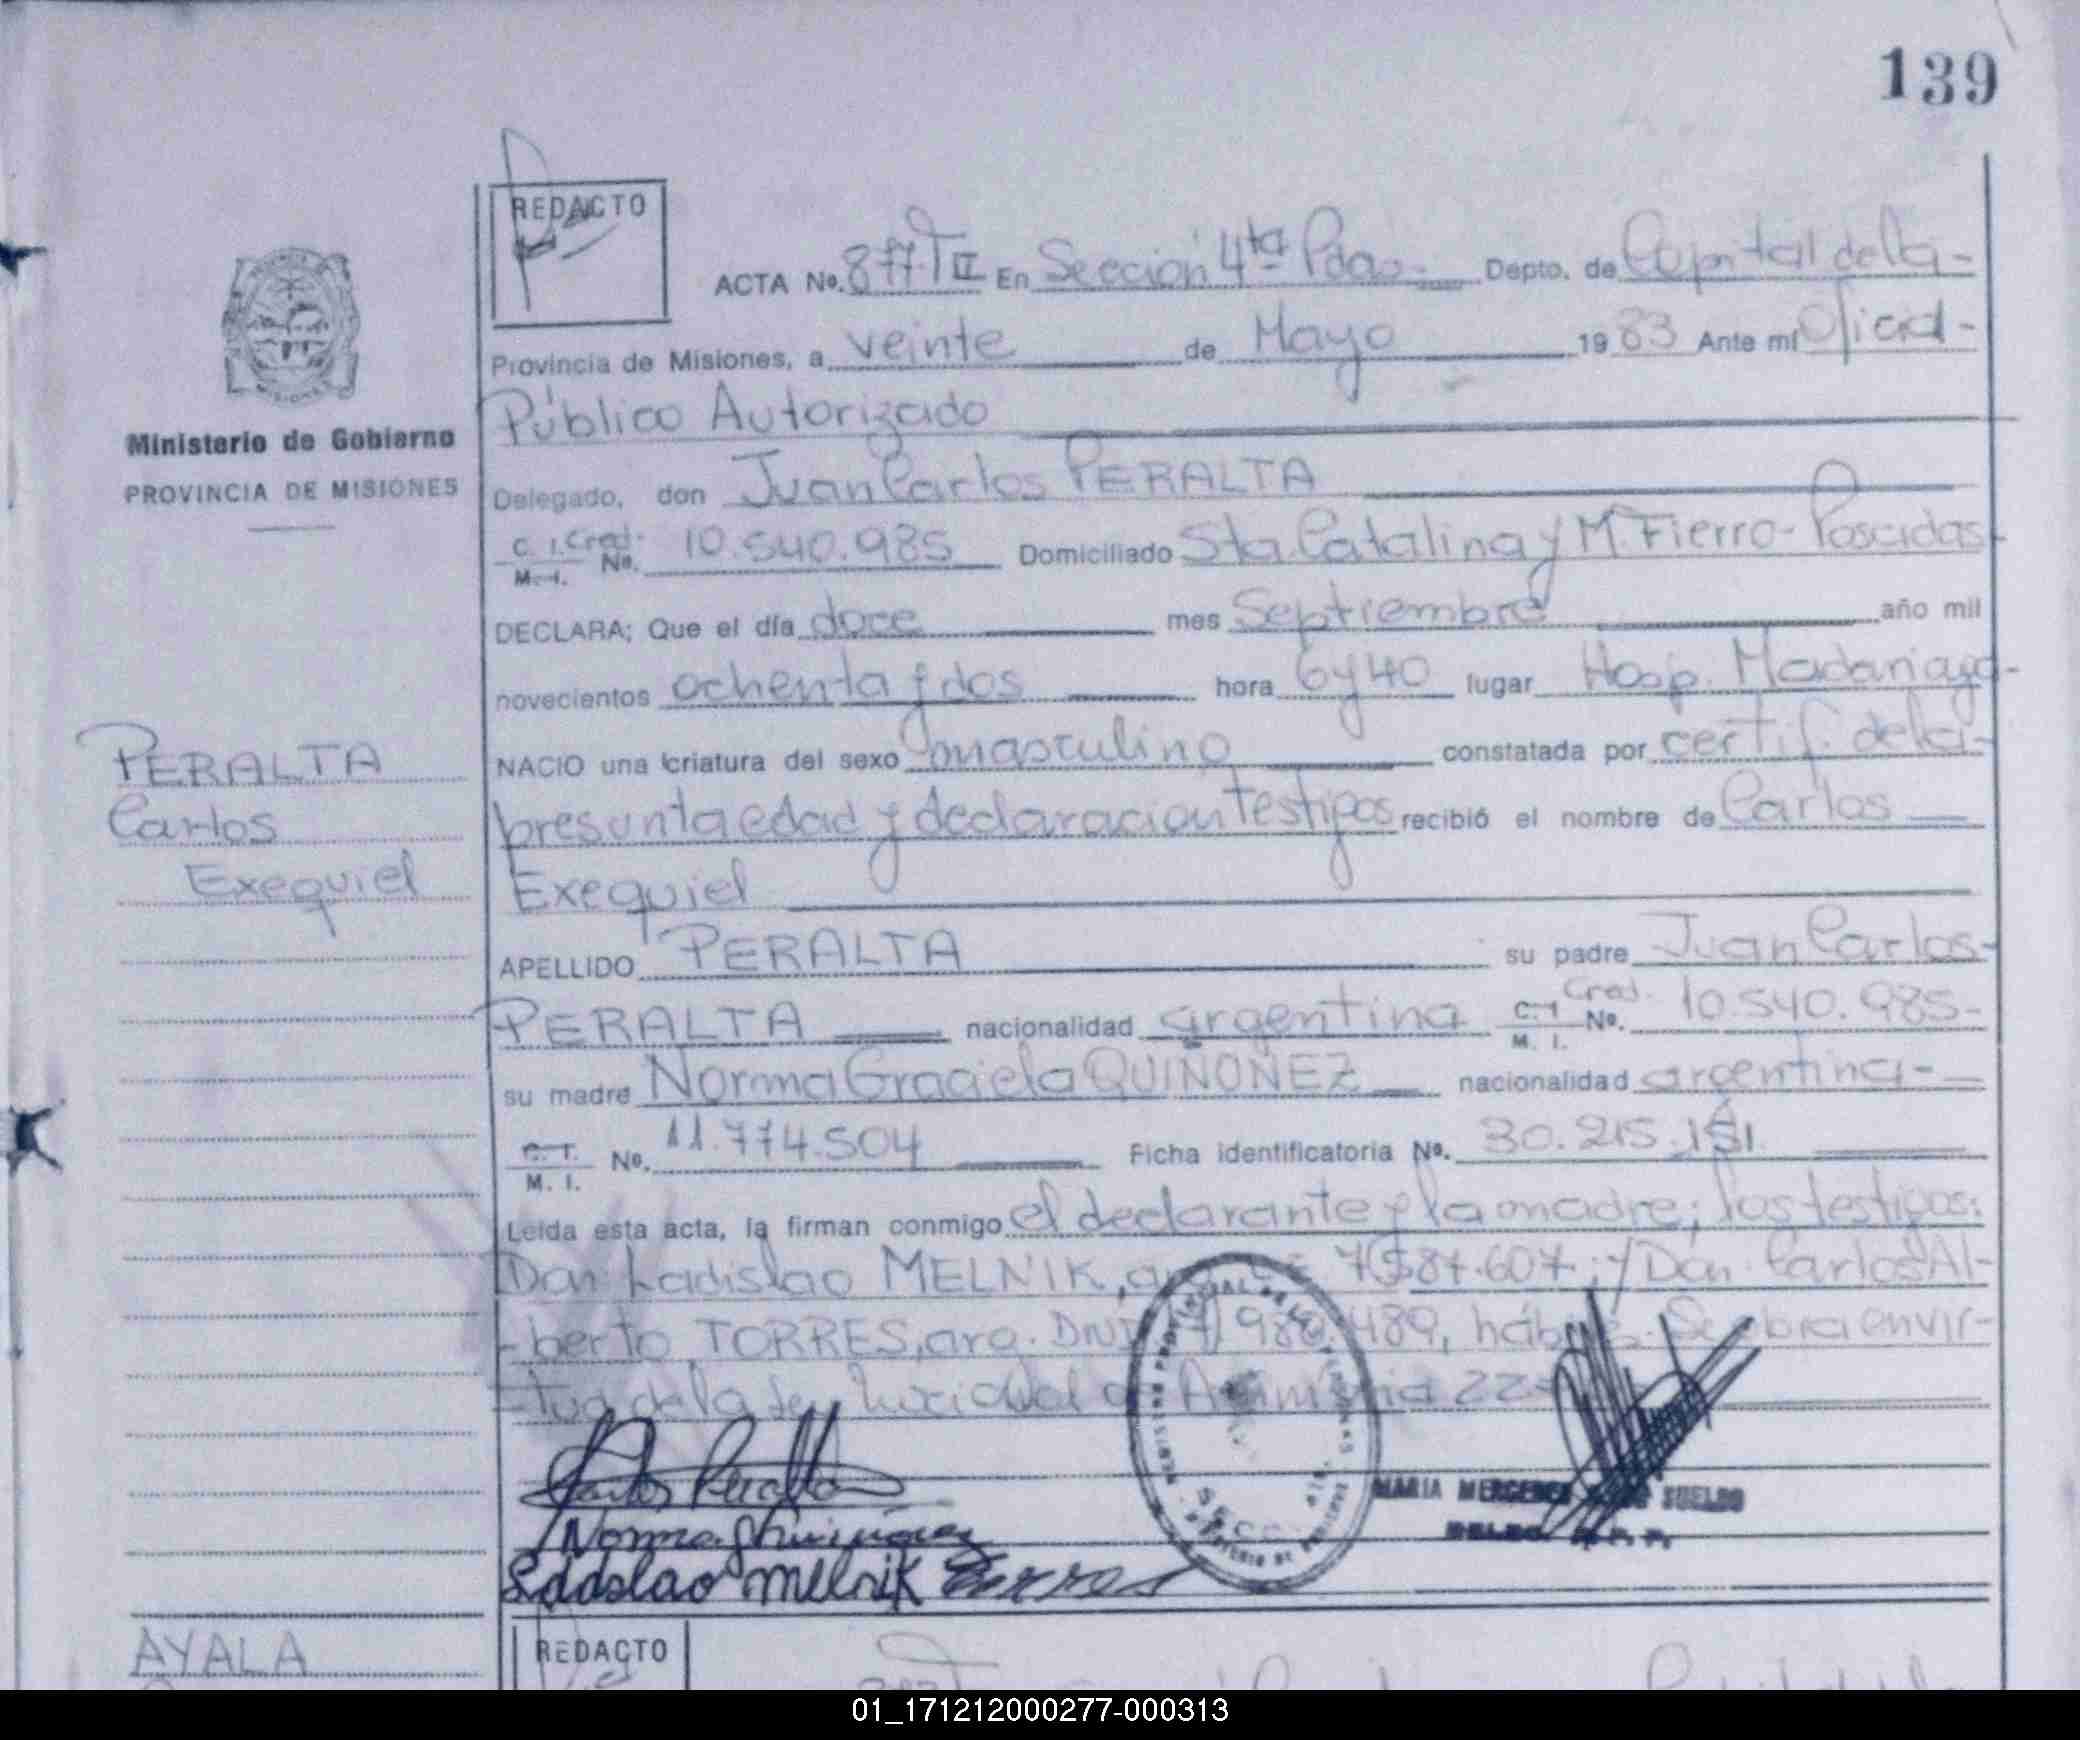 139
REDACTO
ACTA No. 877 T II En Sección 4ta Pdas. Depto. de Capital de la-
Provincia de Misiones, a veinte de Mayo 1983 Ante mí Oficial-
Ministerio de Gobierno
PROVINCIA DE MISIONES
Público Autorizado
Delegado, don Juan Carlos PERALTA
C. I. Cred. M. I. No. 10.540.985 Domiciliado Sta. Catalina y M. Fierro- Posadas-
DECLARA; Que el día doce mes Septiembre año mil
novecientos ochenta y dos hora 6 y 40 lugar Hosp. Madariaga-
PERALTA
Carlos
Exequiel
NACIO una criatura del sexo masculino constatada por certif. de la-
presunta edad y declaracion Testigos recibió el nombre de Carlos
Exequiel
APELLIDO PERALTA su padre Juan Carlos-
PERALTA nacionalidad argentina C. I. Cred. M. I. No. 10.540.985-
su madre Norma Graciela QUIÑONEZ nacionalidad argentina-
C. I. M. I. No. 11.774.504 Ficha identificatoria No. 30.215.151
Leída esta acta, la firman conmigo el declarante y la madre; los testigos:
Don Ladislao MELNIK, 7.587.607; y Don Carlos Al-
-berto TORRES, arg. DNI 489, Se obra en vir-
-tud de la Ley 22
Carlos Peralta
Norma Quiñonez
Ladislao Melnik Torres
MARIA MERCEDES SUELDO
AYALA
REDACTO
01_171212000277-000313